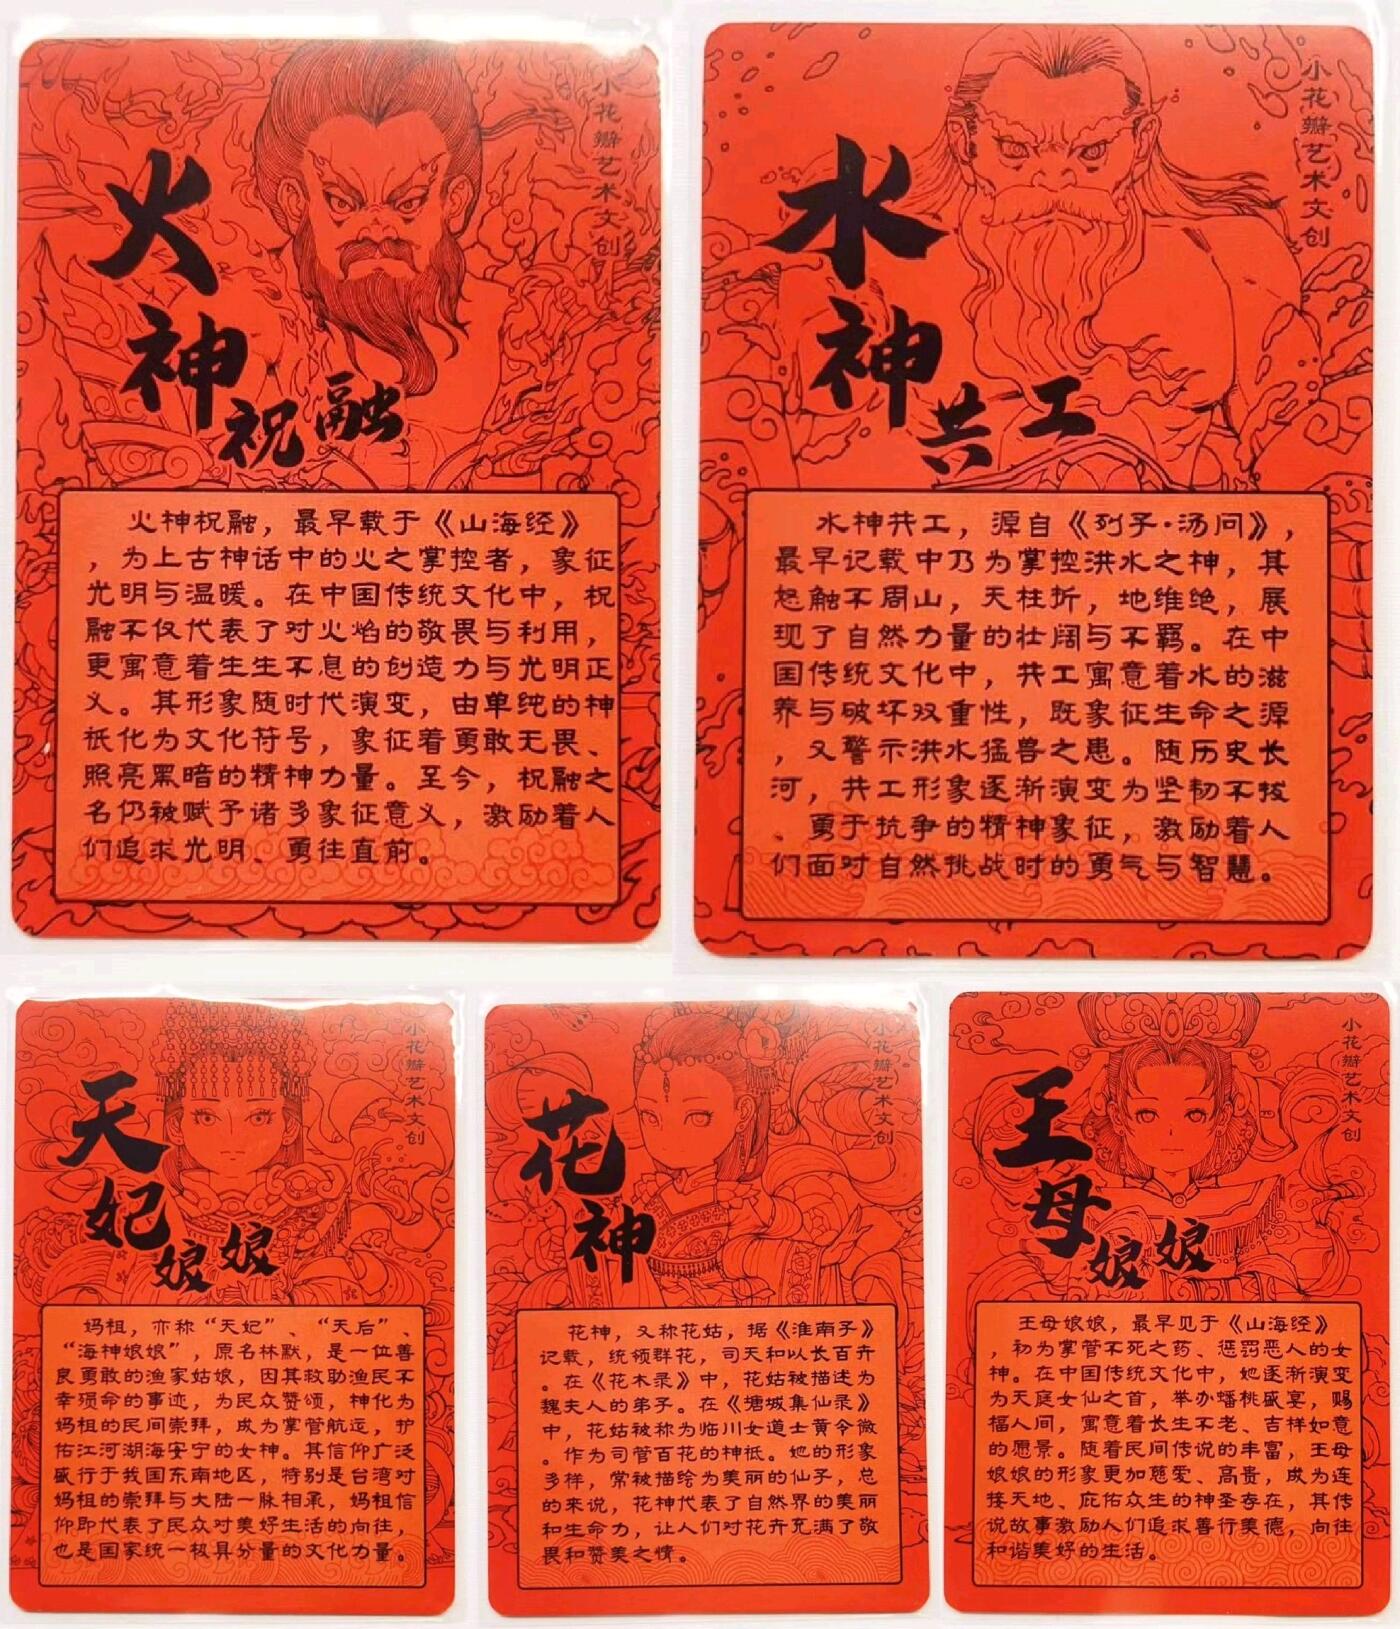 小花瓣艺术文创
火神祝融
火神祝融，最早载于《山海经》
，为上古神话中的火之掌控者，象征
光明与温暖。在中国传统文化中，祝
融不仅代表了对火焰的敬畏与利用，
更寓意着生生不息的创造力与光明正
义。其形象随时代演变，由单纯的神
祇化为文化符号，象征着勇敢无畏、
照亮黑暗的精神力量。至今，祝融之
名仍被赋予诸多象征意义，激励着人
们追求光明、勇往直前。
小花瓣艺术文创
水神共工
水神共工，源自《列子·汤问》，
最早记载中乃为掌控洪水之神，其
怒触不周山，天柱折，地维绝，展
现了自然力量的壮阔与不羁。在中
国传统文化中，共工寓意着水的滋
养与破坏双重性，既象征生命之源
，又警示洪水猛兽之患。随历史长
河，共工形象逐渐演变为坚韧不拔
、勇于抗争的精神象征，激励着人
们面对自然挑战时的勇气与智慧。
小花瓣艺术文创
天妃娘娘
妈祖，亦称“天妃”、“天后”、
“海神娘娘”，原名林默，是一位善
良勇敢的渔家姑娘，因其救助渔民不
幸殒命的事迹，为民众赞颂，神化为
妈祖的民间崇拜，成为掌管航运，护
佑江河湖海安宁的女神。其信仰广泛
盛行于我国东南地区，特别是台湾对
妈祖的崇拜与大陆一脉相承，妈祖信
仰即代表了民众对美好生活的向往，
也是国家统一极具分量的文化力量。
小花瓣艺术文创
花神
花神，又称花姑，据《淮南子》
记载，统领群花，司天和以长百卉
。在《花木录》中，花姑被描述为
魏夫人的弟子。在《墉城集仙录》
中，花姑被称为临川女道士黄令微
。作为司管百花的神祇。她的形象
多样，常被描绘为美丽的仙子，总
的来说，花神代表了自然界的美丽
和生命力，让人们对花卉充满了敬
畏和赞美之情。
小花瓣艺术文创
王母娘娘
王母娘娘，最早见于《山海经》
，初为掌管不死之药、惩罚恶人的女
神。在中国传统文化中，她逐渐演变
为天庭女仙之首，举办蟠桃盛宴，赐
福人间，寓意着长生不老、吉祥如意
的愿景。随着民间传说的丰富，王母
娘娘的形象更加慈爱、高贵，成为连
接天地、庇佑众生的神圣存在，其传
说故事激励人们追求善行美德，向往
和谐美好的生活。